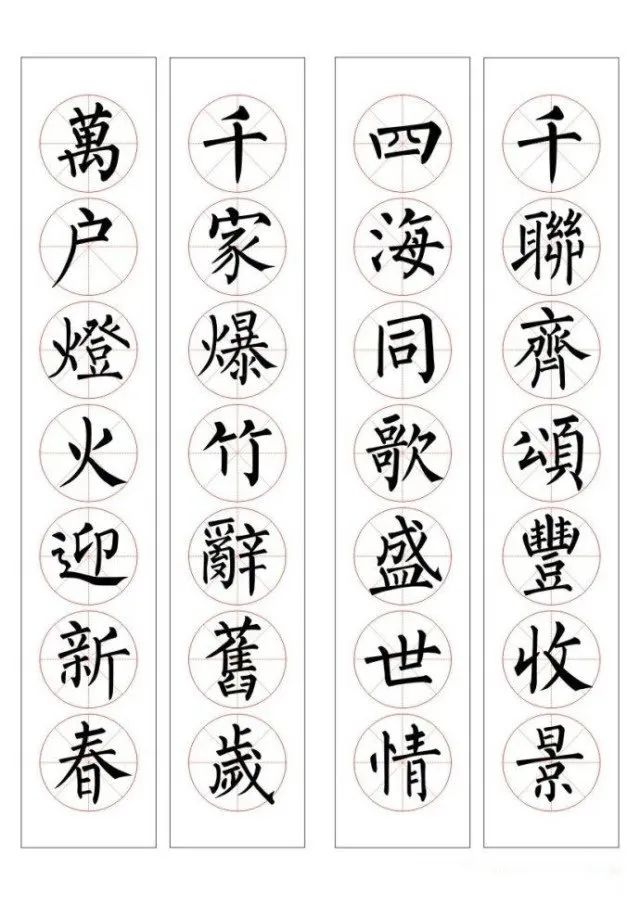 千聯齊頌豐收景
四海同歌盛世情
千家爆竹辭舊歲
萬户燈火迎新春